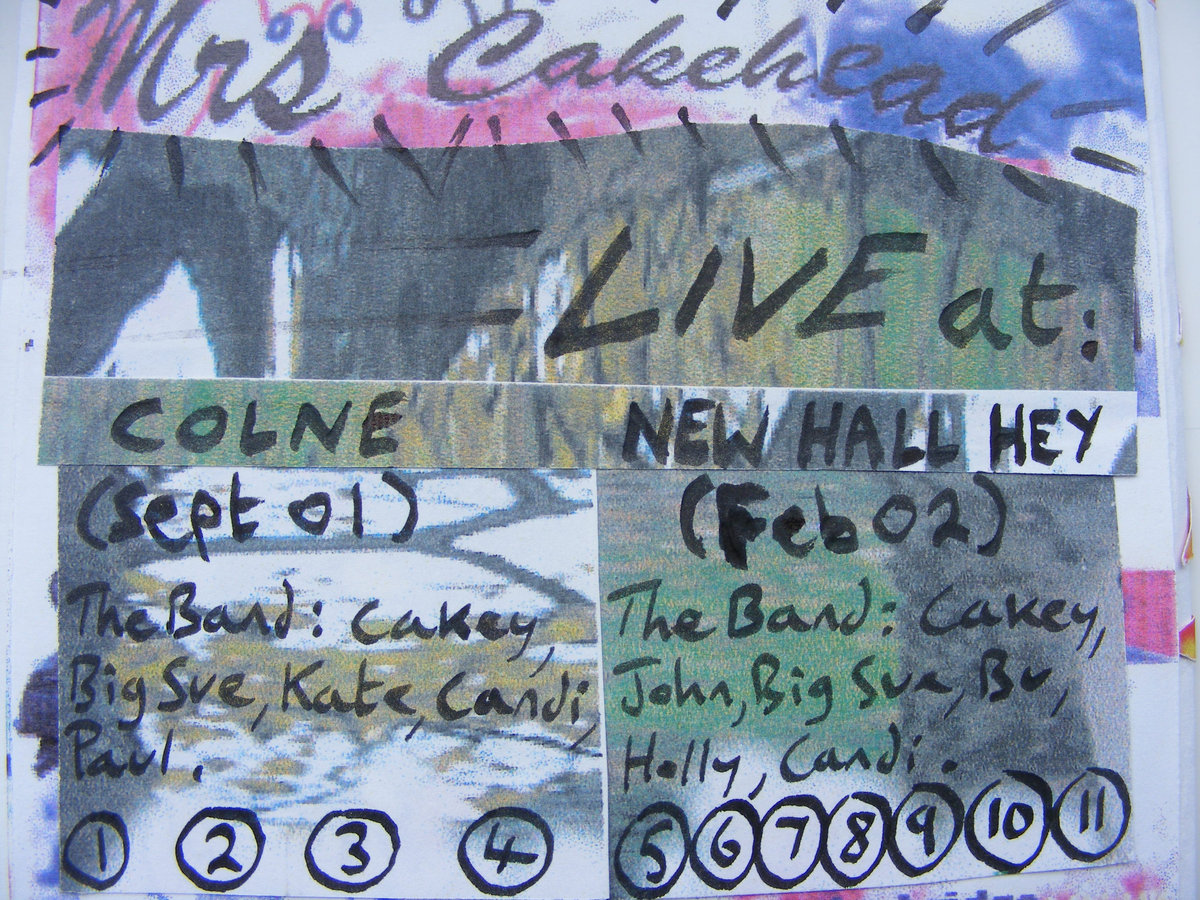 Mrs Cakehead
LIVE at:
COLNE
(Sept 01)
The Band: Cakey,
Big Sue, Kate, Candi,
Paul.
① ② ③ ④
NEW HALL HEY
(Feb 02)
The Band: Cakey,
John, Big Sue, Bu,
Holly, Candi.
⑤ ⑥ ⑦ ⑧ ⑨ ⑩ ⑪